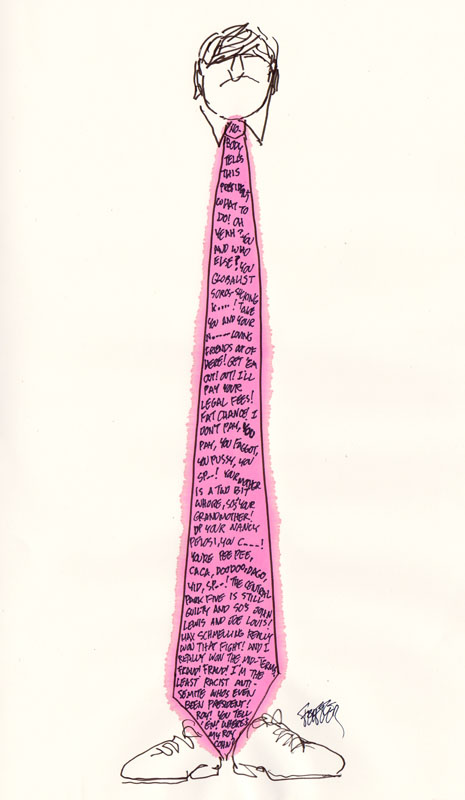 NO-
BODY
TELLS
THIS
PRESIDENT
WHAT TO
DO! OH
YEAH? YOU
AND WHO
ELSE? YOU
GLOBALIST
SOROS-SUCKING
K----! TAKE
YOU AND YOUR
N-----LOVING
FRIENDS OUT OF
HERE! GET 'EM
OUT! OUT! I'LL
PAY YOUR
LEGAL FEES!
FAT CHANCE! I
DON'T PAY, YOU
PAY, YOU FAGGOT,
YOU PUSSY, YOU
SP--! YOUR MOTHER
IS A TWO BIT
WHORE, SO'S YOUR
GRANDMOTHER!
UP YOUR NANCY
PELOSI, YOU C---!
YOU'RE PEE PEE,
CACA, DOODOO, DAGO,
YID, SP--! THE CENTRAL
PARK FIVE IS STILL
GUILTY AND SO'S JOHN
LEWIS AND JOE LOUIS!
MAX SCHMELLING REALLY
WON THAT FIGHT! AND I
REALLY WON THE MID-TERMS,
FRAUD! FRAUD! I'M THE
LEAST RACIST ANTI-
SEMITE WHO'S EVER
BEEN PRESIDENT!
ROY! YOU TELL
'EM! WHERE'S
MY ROY
COHN?
FEIFFER